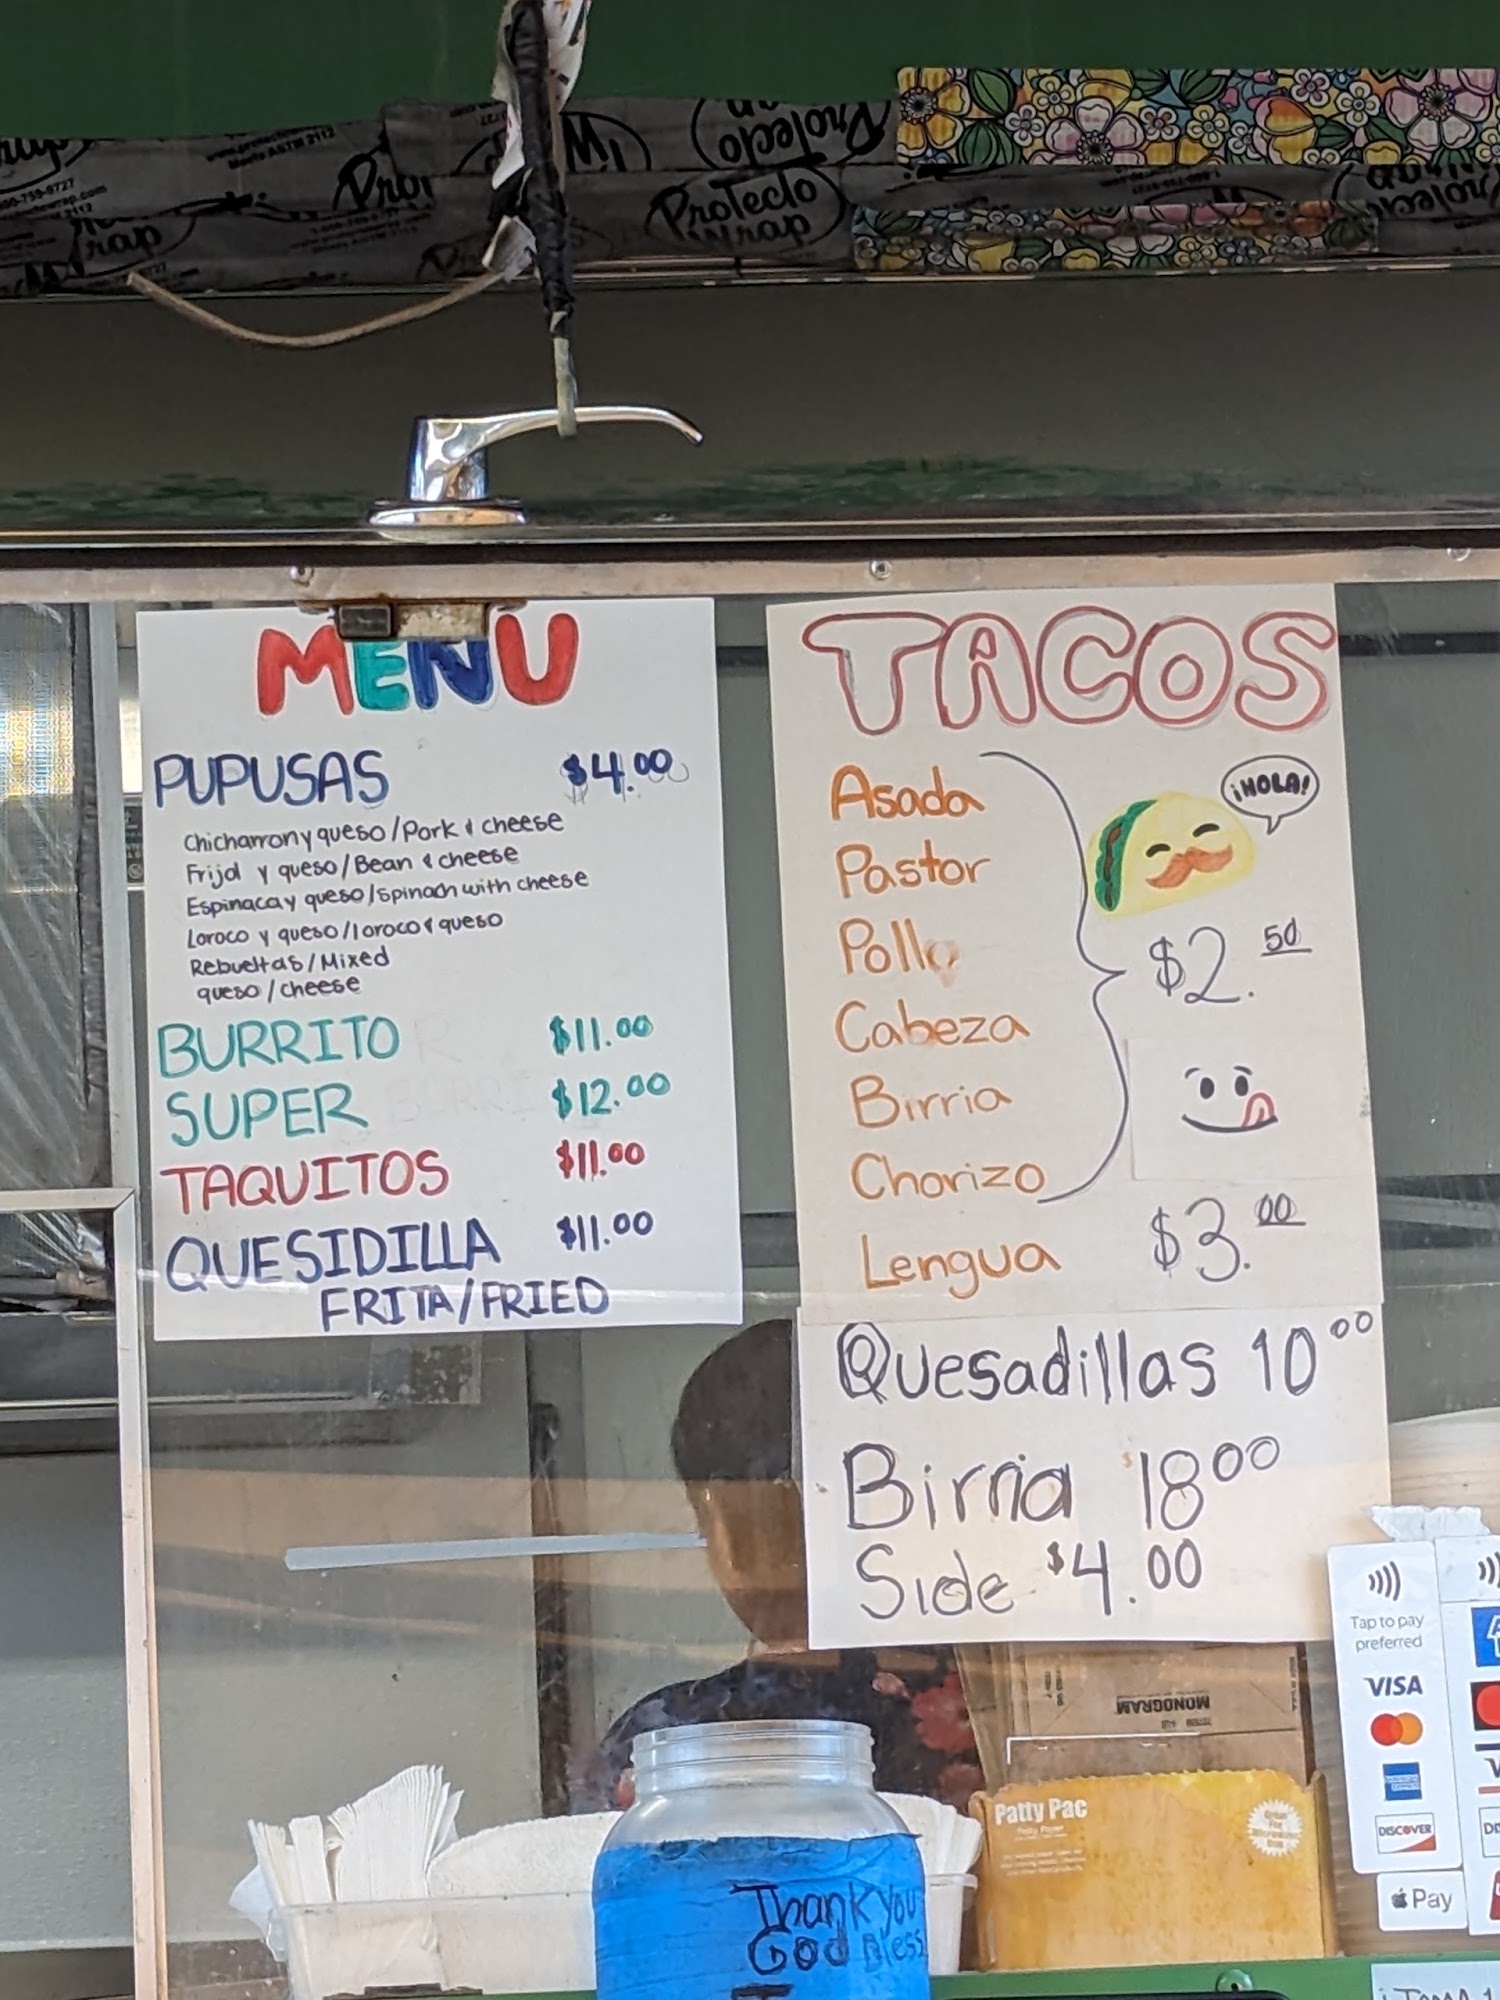 Protecto
Wrap
MENU
PUPUSAS $4.00
Chicharron y queso/Pork & cheese
Frijol y queso/Bean & cheese
Espinaca y queso/spinach with cheese
Loroco y queso/loroco & queso
Rebueltas/Mixed
queso/cheese
BURRITO $11.00
SUPER $12.00
TAQUITOS $11.00
QUESIDILLA $11.00
FRITA/FRIED
TACOS
Asada
¡HOLA!
Pastor
Pollo
$2.50
Cabeza
Birria
Chorizo
Lengua $3.00
Quesadillas 10 00
Birria $18 00
Side $4.00
Tap to pay
preferred
VISA
AMERICAN EXPRESS
DISCOVER
Pay
MONOGRAM
Patty Pac
Patty Paper
Thank you
God Bless